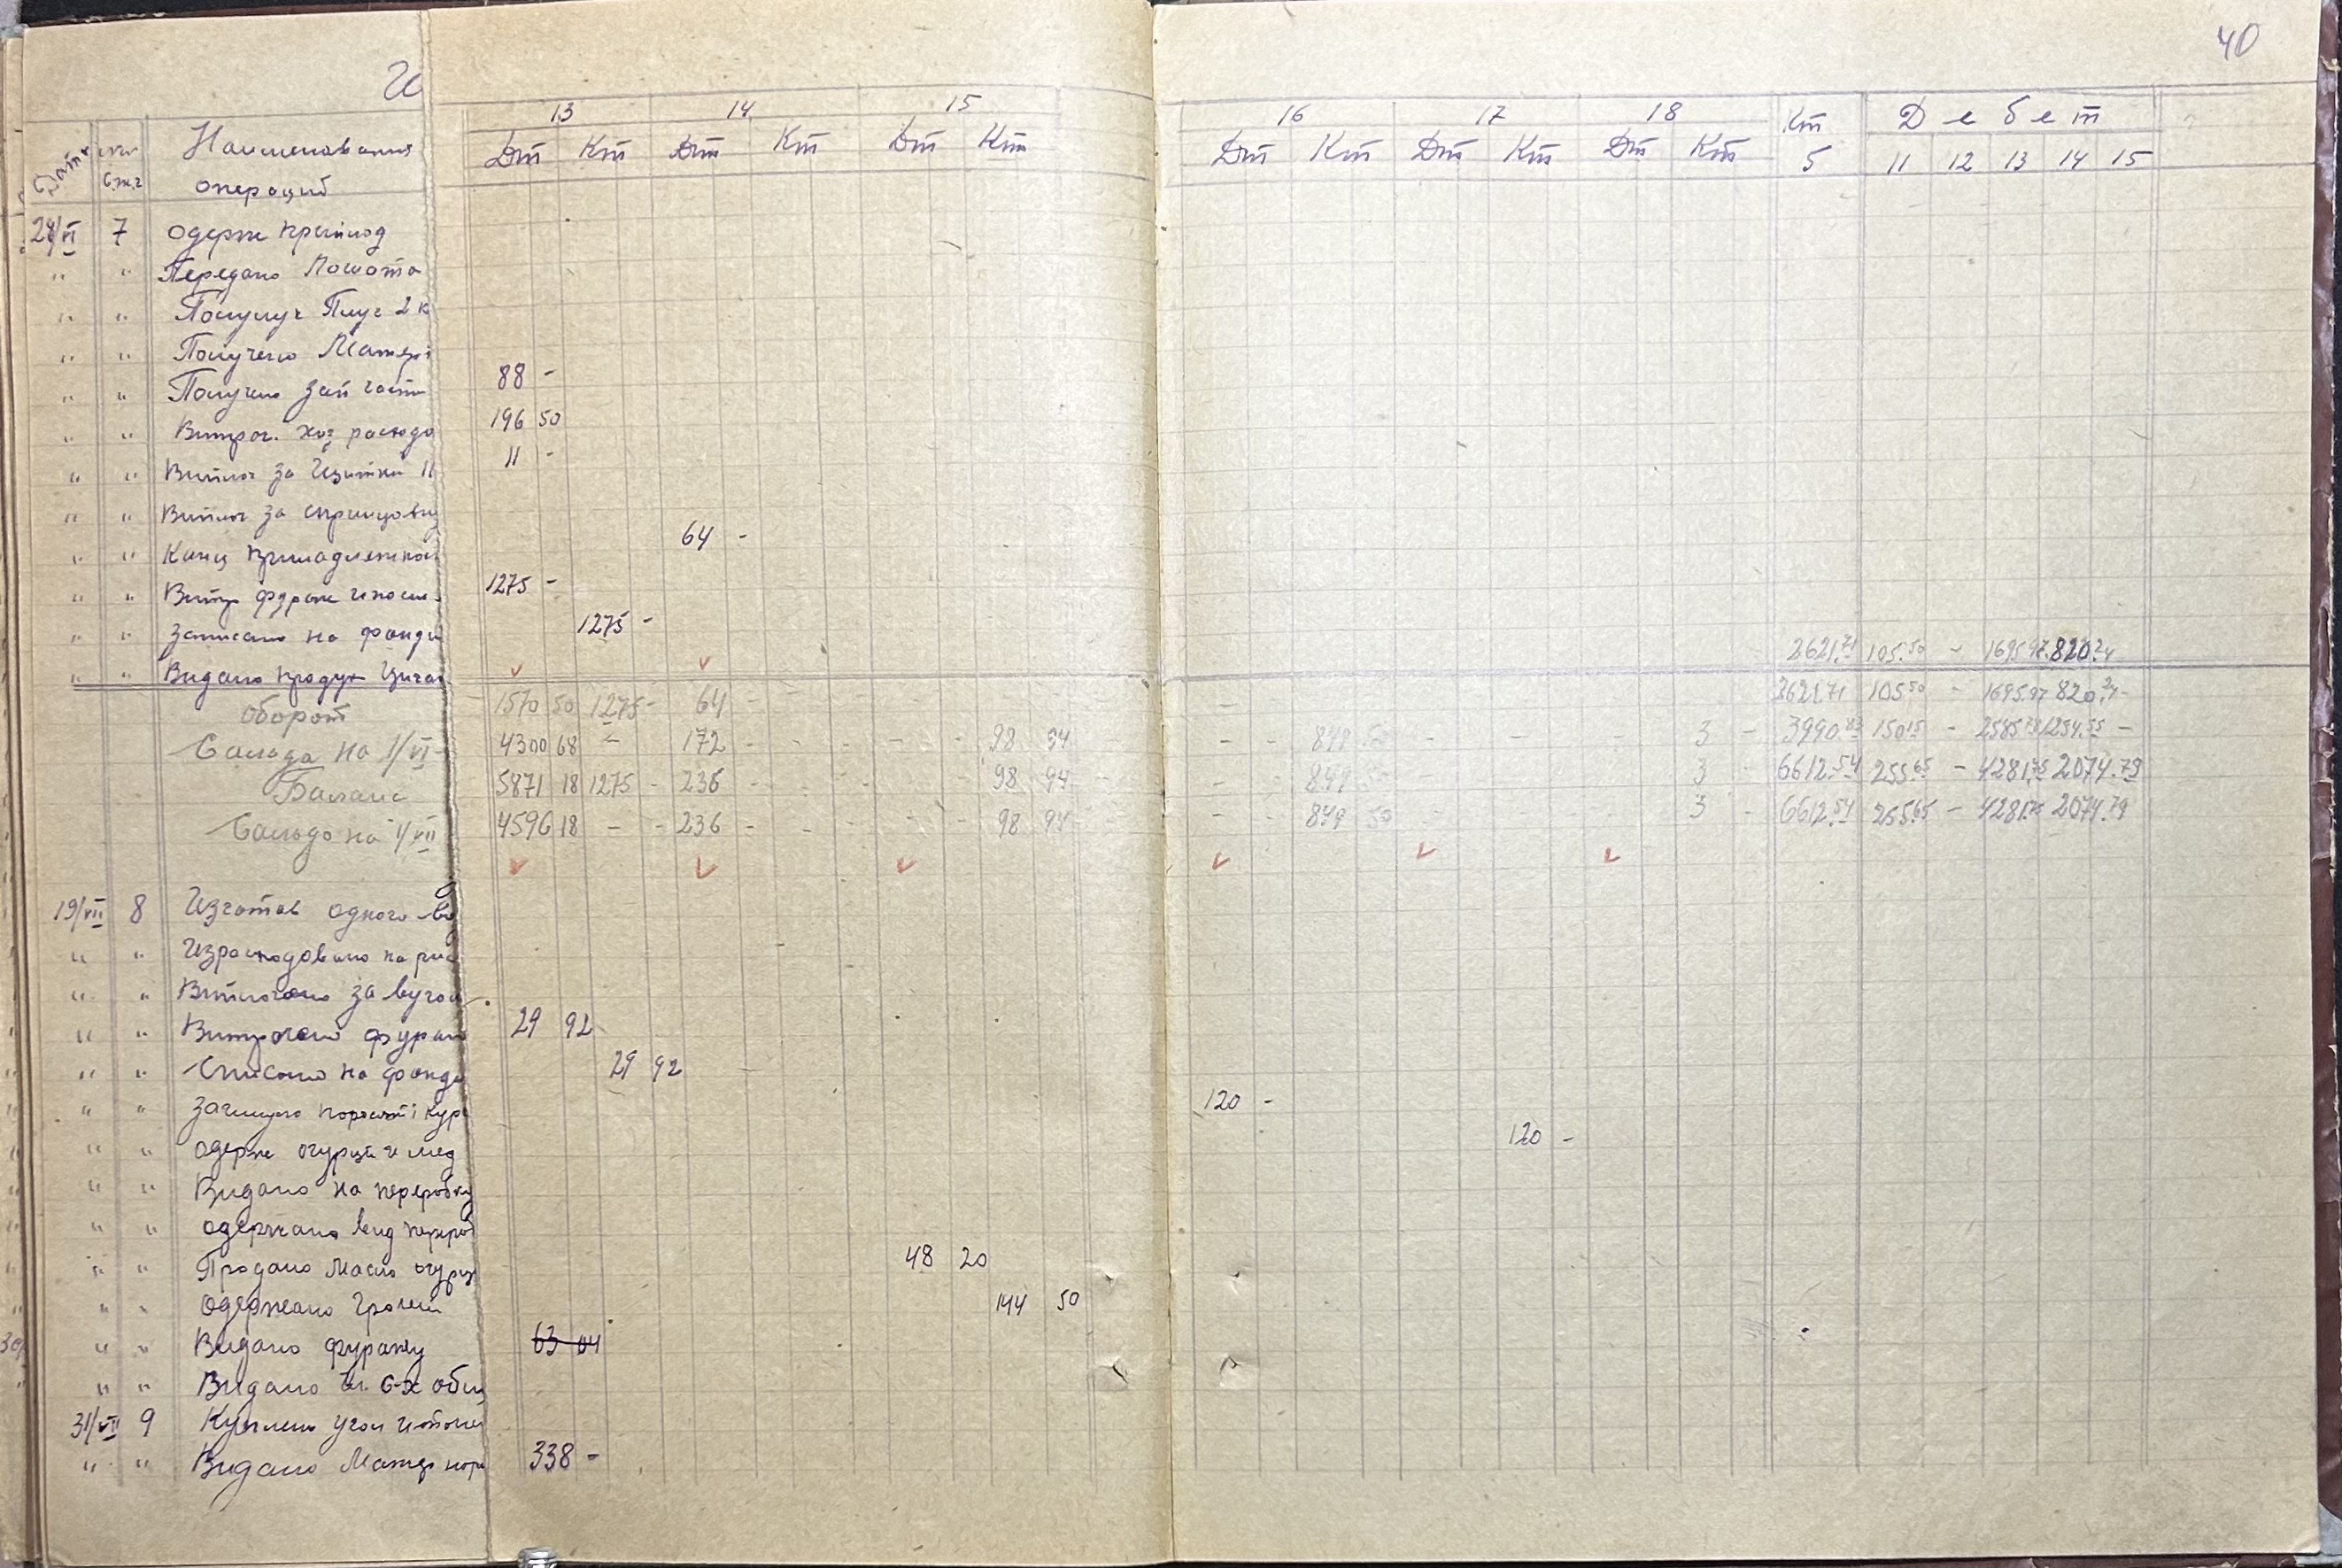 40
13 14 15 16 17 18 Кт Дебет
Дата Наименования Дт Кт Дт Кт Дт Кт Дт Кт Дт Кт Дт Кт 5 11 12 13 14 15
операций
24/VI 7 одерж приплод
" " Передано Лошата
" " Плуг 2 к
" " Получено Матері
" " Получено зап части 88 -
" " Витрач. хоз расходо 196 50
" " Виплач за 11 -
" " Виплач за
" " Канц принадлежнос 64 -
" " Витр фураж 1275 -
" " Записано на фонди 1275 -
" " Видано продук 2621.71 105.50 - 1695.97 820.24
оборот 1570 50 1275 - 64 - 2621.71 105 50 - 1695.97 820.24
Сальдо на 1/VI 4300 68 - 172 - 98 94 849 50 3 - 3990.83 150 15 - 2585.78 1254.55 -
Баланс 5871 18 1275 - 236 - 98 94 849 50 3 - 6612.54 255.65 - 4281.75 2074.79
Сальдо на 1/VII 4596 18 - - 236 - 98 94 849 50 3 - 6612.54 255.65 - 4281.75 2074.79
19/VII 8 Изготов одного
" " Израсходовано на
" " Виплачено за вугол
" " Витрачено фураж 29 92
" " Списано на фонди 29 92
" " поросят і кур 120 -
" " одерж огурци и мед 120 -
" " Видано на переробку
" " одержано вид перероб
" " Продано Масло огурц 48 20
" " одержано Грошей 144 50
30 " " Видано фуражу 63 04
" " Видано с-х
31/VII 9 Куплено угол
" " Видано Матер 338 -